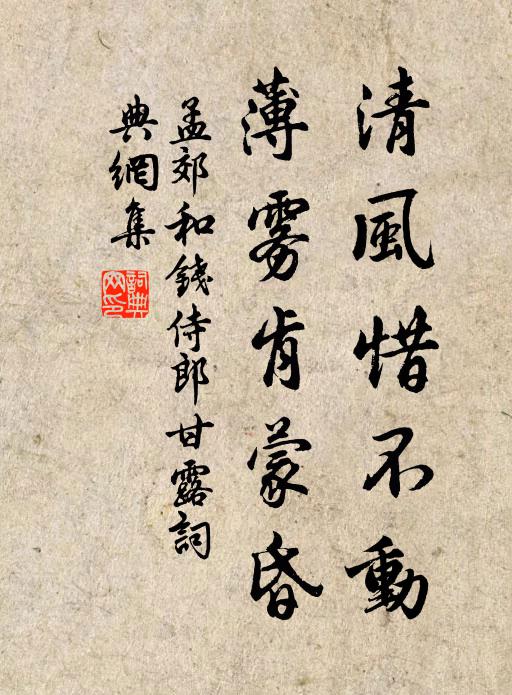 清風惜不動
薄雾肯蒙昏
孟郊和錢侍郎甘露詞
典網集
詞典網印